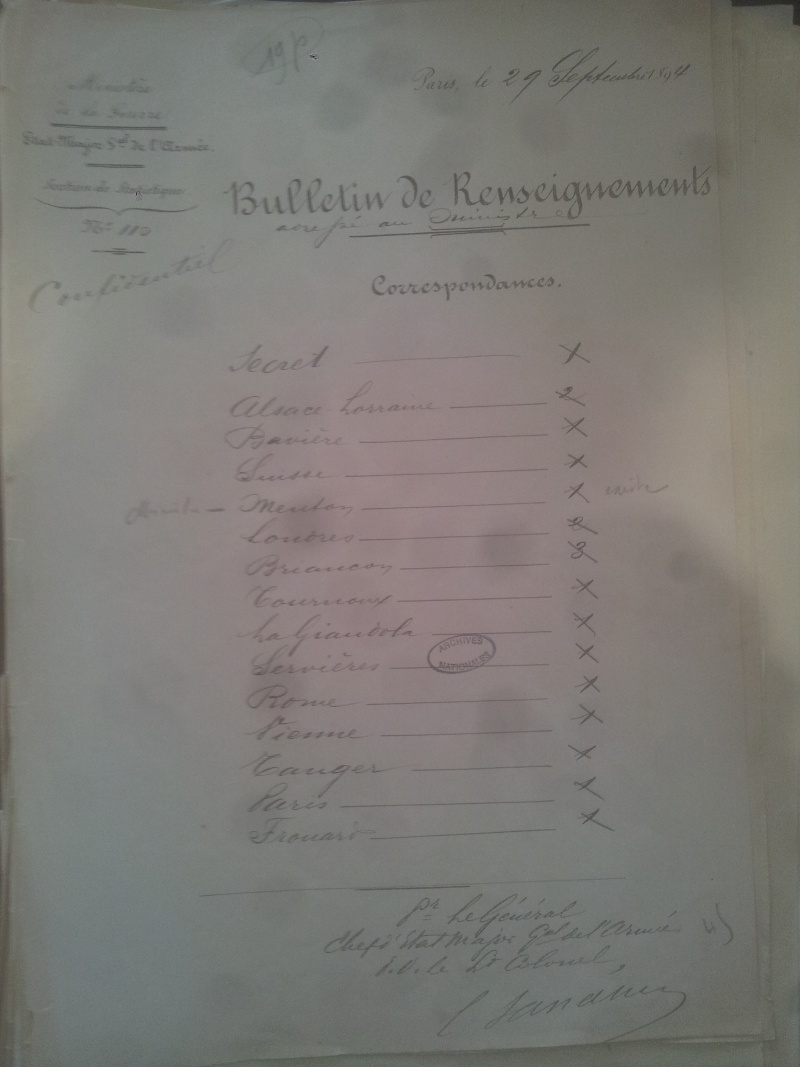 Paris, le 29 Septembre 1894
Ministère
de la Guerre
Etat-Major Gal de l'Armée.
Section de Statistique
No 113
Confidentiel
Bulletin de Renseignements
adressé au Ministre
Correspondances.
Secret
Alsace-Lorraine 2
Bavière
Suisse
Menton
Londres 2
Briançon 3
Tournoux
La Giandola
Servières
Rome
Vienne
Tanger
Paris
Frouard
ARCHIVES
NATIONALES
Pr Le Général
Chef d'Etat Major Gal de l'Armée
P.O. le Lt Colonel,
Sandherr